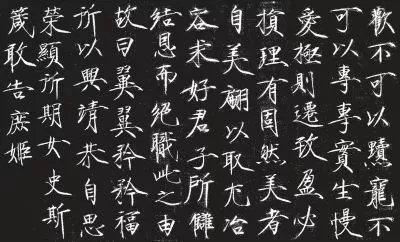 歡不可以黷寵不
可以專專實生慢
愛極則遷致盈必
損理有固然美者
自美翩以取尤冶
容求好君子所讎
結恩而絕職此之由
故曰翼翼矜矜福
所以興靖恭自思
榮顯所期女史斯
箴敢告庶姬